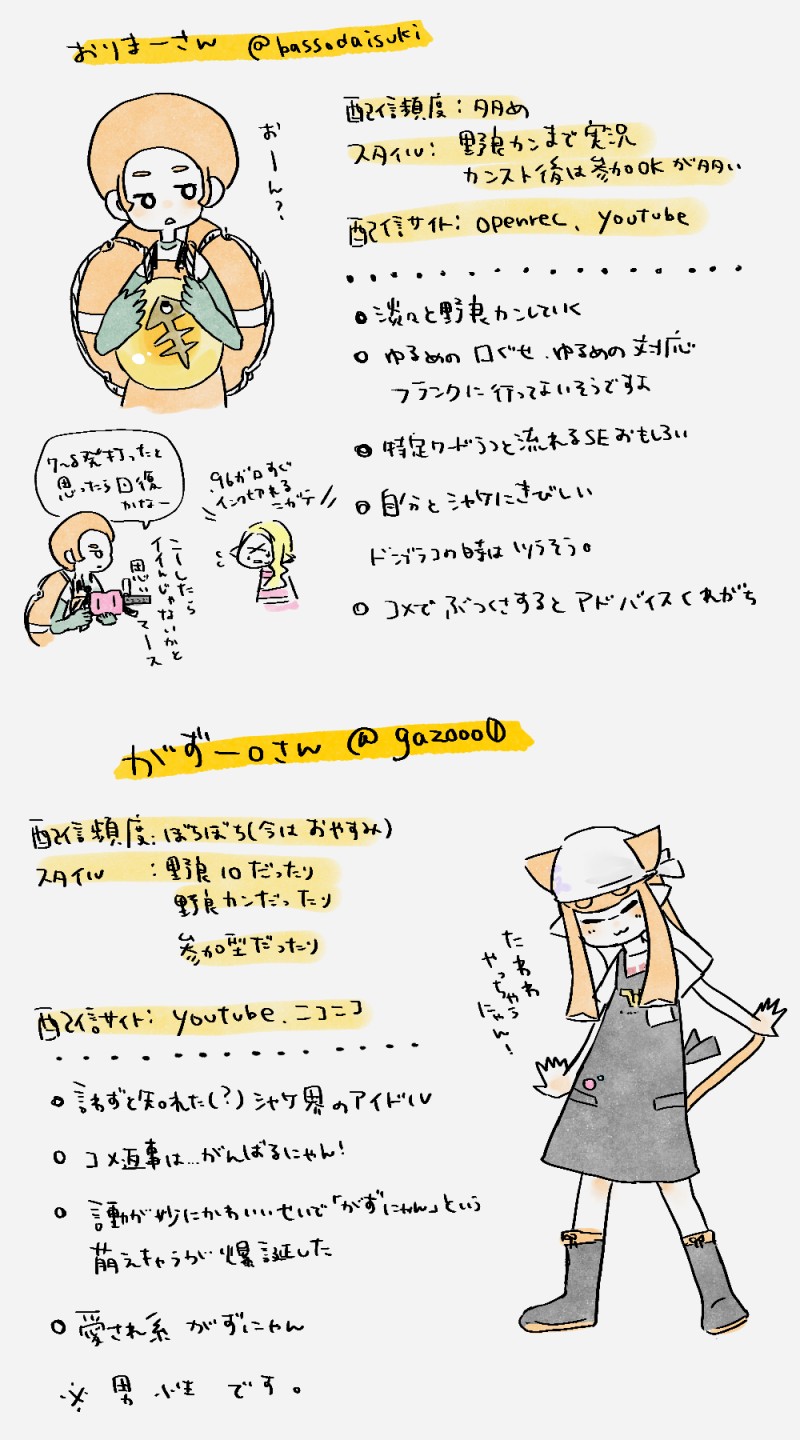 おりまーさん @bassodaisuki
おーん?
配信頻度:多め
スタイル:野良カンまで実況
カンスト後は参加OKが多い
配信サイト:openrec、youtube
淡々と野良カンしていく
ゆるめの口ぐせ、ゆるめの対応
フランクに行ってよいそうですよ
特定ワードうつと流れるSEおもしろい
自分とシャケにきびしい
ドンブラコの時はツラそう。
コメでぶつくさするとアドバイスくれがち
ク〜る発打ったと
思ったら回復
かなー
こーしたら
イイんじゃないかと
思いマース
96ガロすぐ
インク切れる
ニガテ
がずーoさん @gazooo①
配信頻度:ぼちぼち(今はおやすみ)
スタイル:野良10だったり
野良カンだったり
参加型だったり
配信サイト:youtube、ニコニコ
たわわ
やっちゃう
にゃん!
言わずと知れた(?)シャケ界のアイドル
コメ返事は…がんばるにゃん!
言動が妙にかわいいせいで「がずにゃん」という
萌えキャラが爆誕した
愛され系がずにゃん
※男性です。